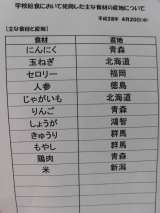 学校給食において使用した主な食材の産地について
平成28年 4月20日(水)
(主な食材と産地)
食材 産地
にんにく 青森
玉ねぎ 北海道
セロリー 福岡
人参 徳島
じゃがいも 北海道
りんご 青森
しょうが 高知
きゅうり 群馬
もやし 群馬
鶏肉 青森
米 新潟